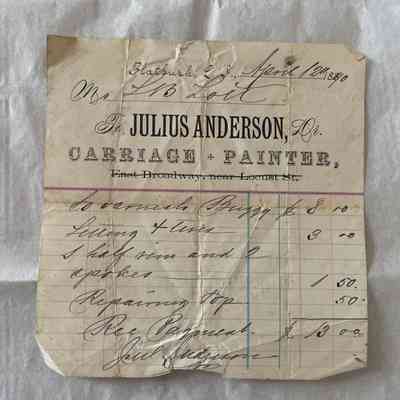 April 12th 1890
Mr L B Lott
To JULIUS ANDERSON, Dr.
CARRIAGE + PAINTER,
East Broadway, near Locust St.
To varnish Buggy $ 8 00
Setting 4 tires 3 00
1 half rim and 2
spokes 1 50.
Repairing top 50.
Rec Payment. $ 13 00
Juls Anderson